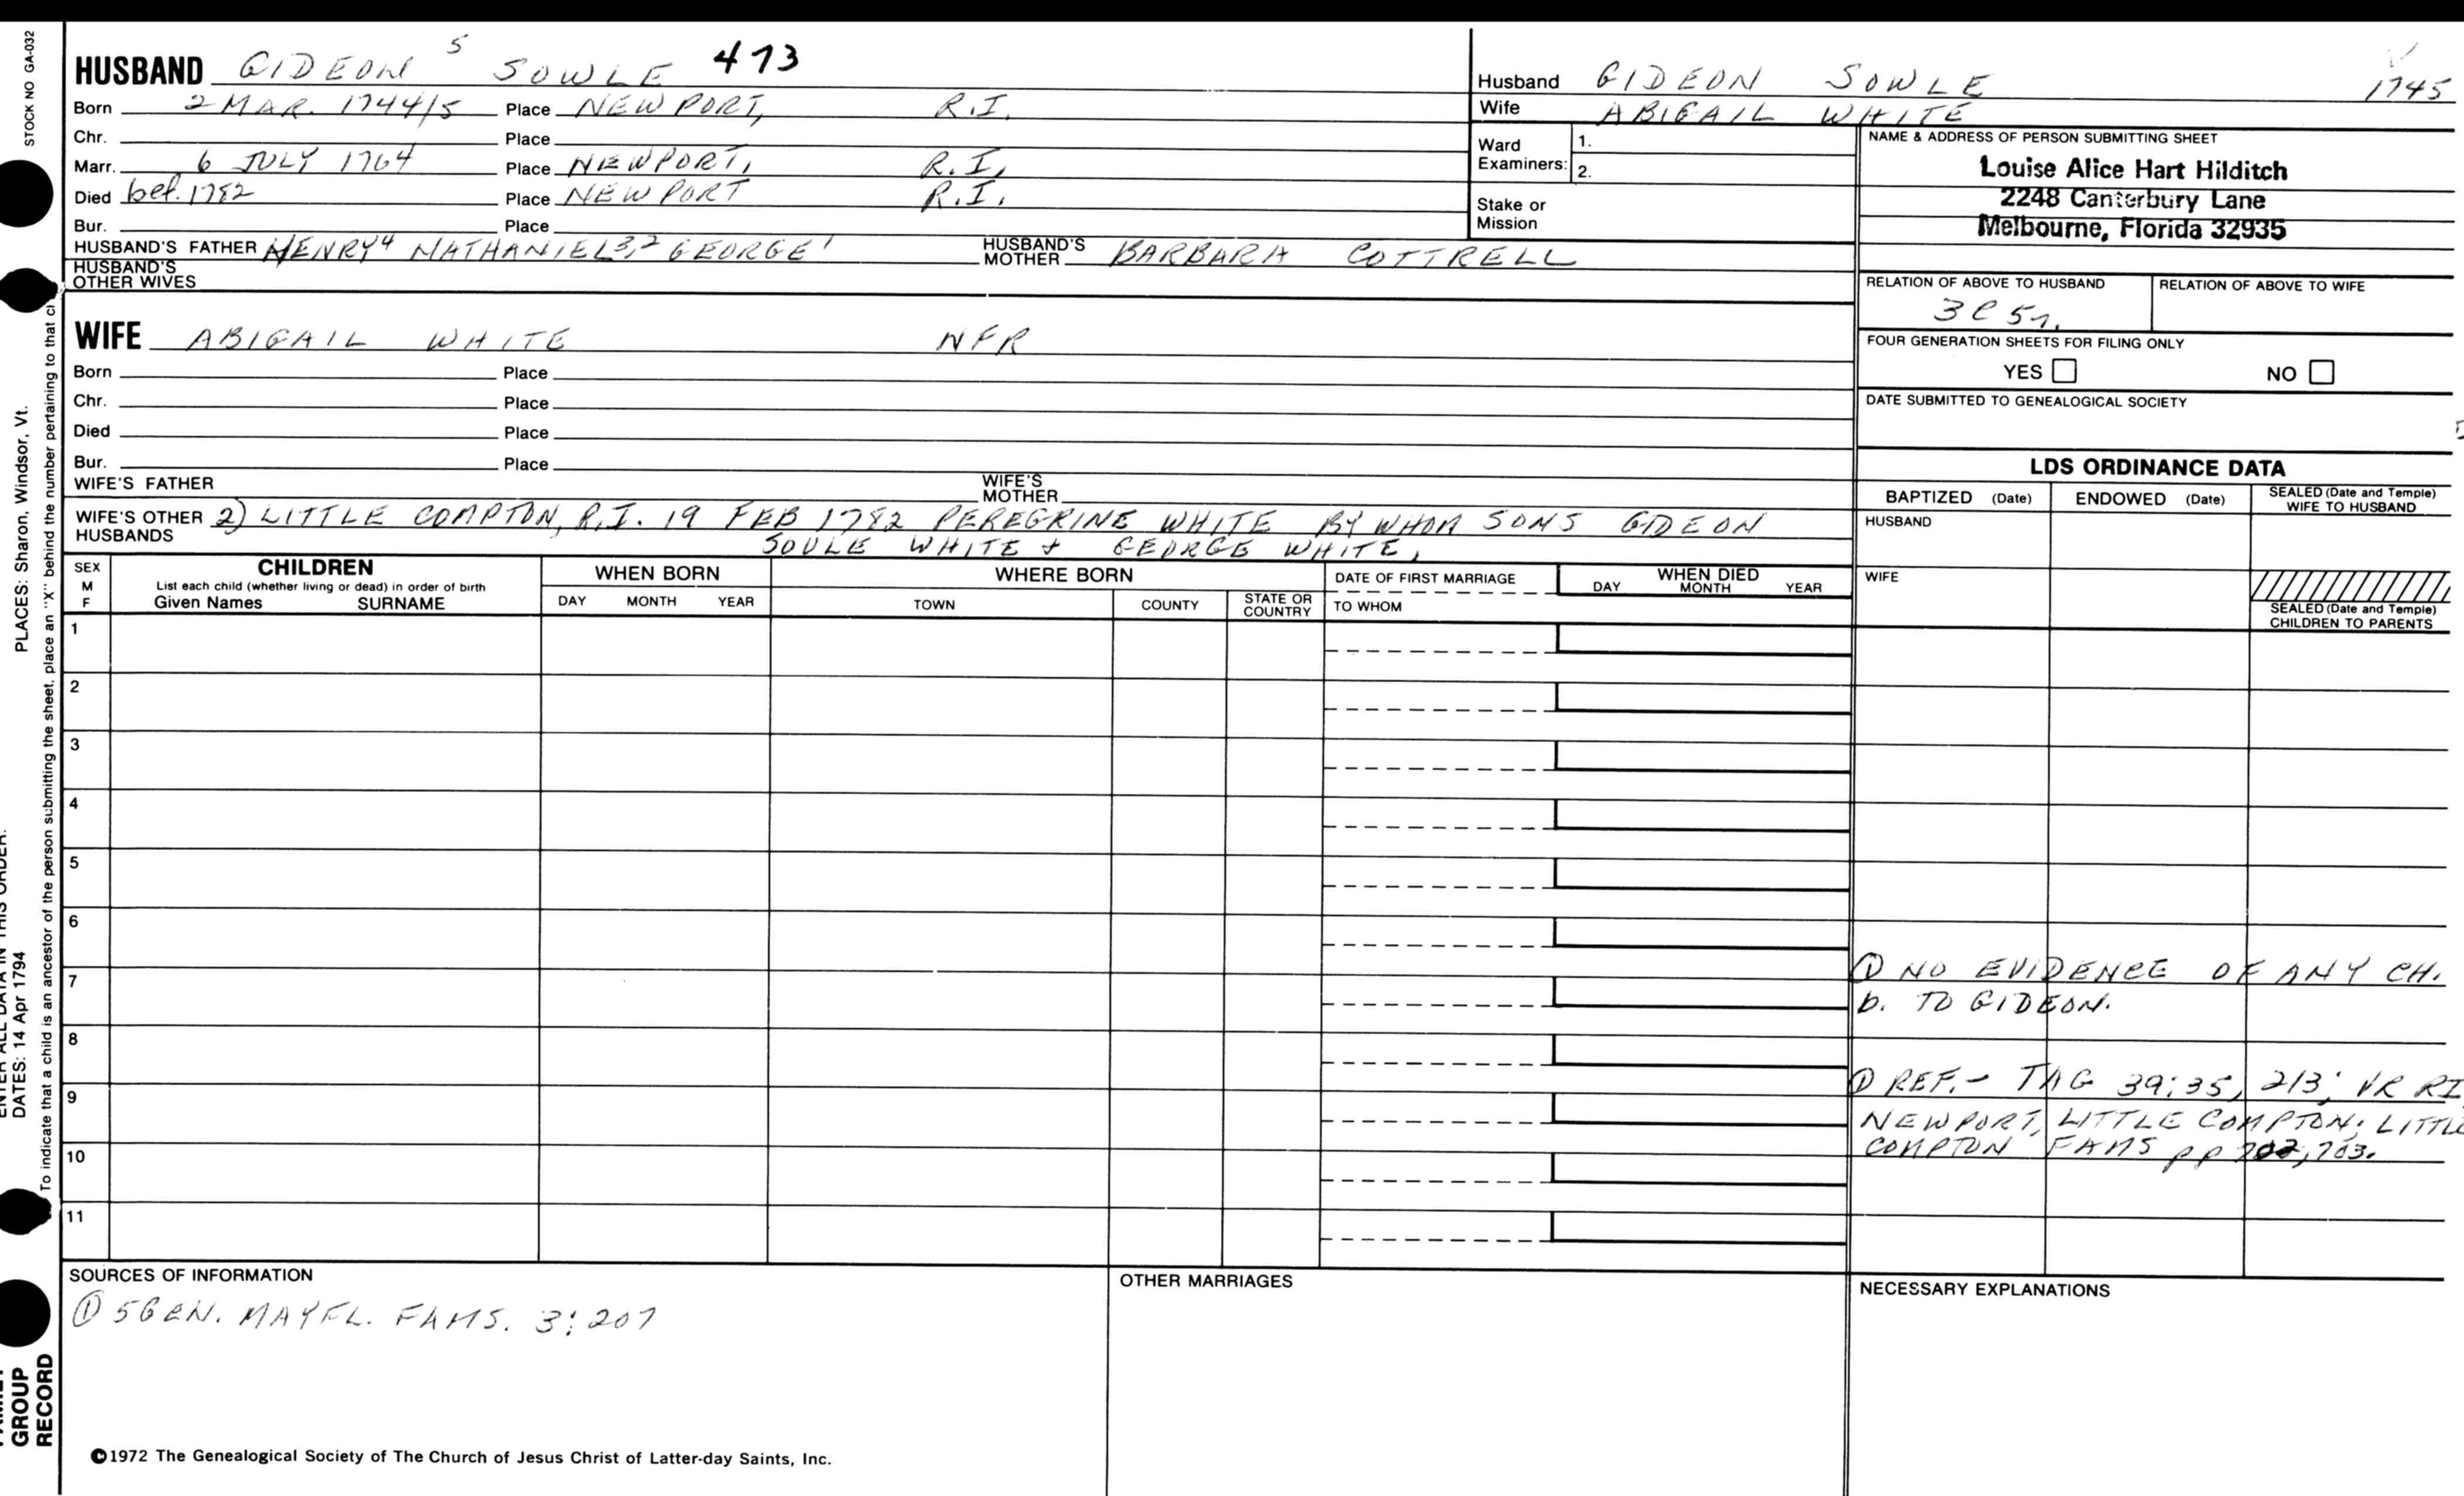 STOCK NO GA-032
HUSBAND GIDEON 5 SOWLE 473
Born 2 MAR. 1744/5 Place NEWPORT, R.I.
Chr. Place
Marr. 6 JULY 1764 Place NEWPORT, R.I.
Died bef. 1782 Place NEWPORT R.I.
Bur. Place
HUSBAND'S FATHER HENRY4 NATHANIEL3,2 GEORGE1 HUSBAND'S MOTHER BARBARA COTTRELL
HUSBAND'S OTHER WIVES
WIFE ABIGAIL WHITE NFR
Born Place
Chr. Place
Died Place
Bur. Place
WIFE'S FATHER WIFE'S MOTHER
WIFE'S OTHER HUSBANDS 2) LITTLE COMPTON, R.I. 19 FEB 1782 PEREGRINE WHITE BY WHOM SONS GIDEON
SOULE WHITE + GEORGE WHITE,
Husband GIDEON SOWLE 1745
Wife ABIGAIL WHITE
Ward Examiners: 1.
2.
Stake or Mission
NAME & ADDRESS OF PERSON SUBMITTING SHEET
Louise Alice Hart Hilditch
2248 Canterbury Lane
Melbourne, Florida 32935
RELATION OF ABOVE TO HUSBAND RELATION OF ABOVE TO WIFE
3C 5r.
FOUR GENERATION SHEETS FOR FILING ONLY
YES NO
DATE SUBMITTED TO GENEALOGICAL SOCIETY
LDS ORDINANCE DATA
BAPTIZED (Date) ENDOWED (Date) SEALED (Date and Temple) WIFE TO HUSBAND
HUSBAND
WIFE
SEALED (Date and Temple) CHILDREN TO PARENTS
SEX M F
CHILDREN
List each child (whether living or dead) in order of birth
Given Names SURNAME
WHEN BORN
DAY MONTH YEAR
WHERE BORN
TOWN COUNTY STATE OR COUNTRY
DATE OF FIRST MARRIAGE
TO WHOM
WHEN DIED
DAY MONTH YEAR
1
2
3
4
5
6
7
8
9
10
11
① NO EVIDENCE OF ANY CH.
b. TO GIDEON.
① REF.- TAG 39:35, 213; VR RI
NEWPORT, LITTLE COMPTON; LITTLE
COMPTON FAMS pp 702,703.
SOURCES OF INFORMATION
① 5GEN. MAYFL. FAMS. 3:207
OTHER MARRIAGES
NECESSARY EXPLANATIONS
©1972 The Genealogical Society of The Church of Jesus Christ of Latter-day Saints, Inc.
PLACES: Sharon, Windsor, Vt.
ENTER ALL DATA IN THIS ORDER:
DATES: 14 Apr 1794
To indicate that a child is an ancestor of the person submitting the sheet, place an "X" behind the number pertaining to that
FAMILY GROUP RECORD